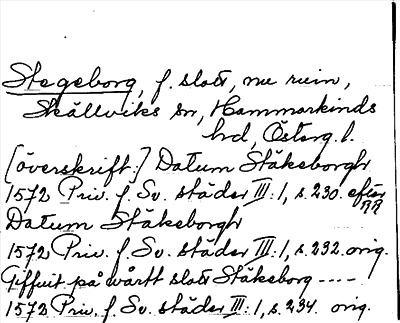 Stegeborg, f. slott, nu ruin,
Skällviks sn, Hammarkinds
hd, Österg. l.
[överskrift:] Datum Stäkeborgh
1572 Priv. f. Sv. städer III:1, s. 230. efter RR
Datum Stäkeborgh
1572 Priv. f. Sv. städer III:1, s. 232. orig.
Giffuit på wårtt slott Stäkeborg ----
1572 Priv. f. Sv. städer III:1, s. 234. orig.